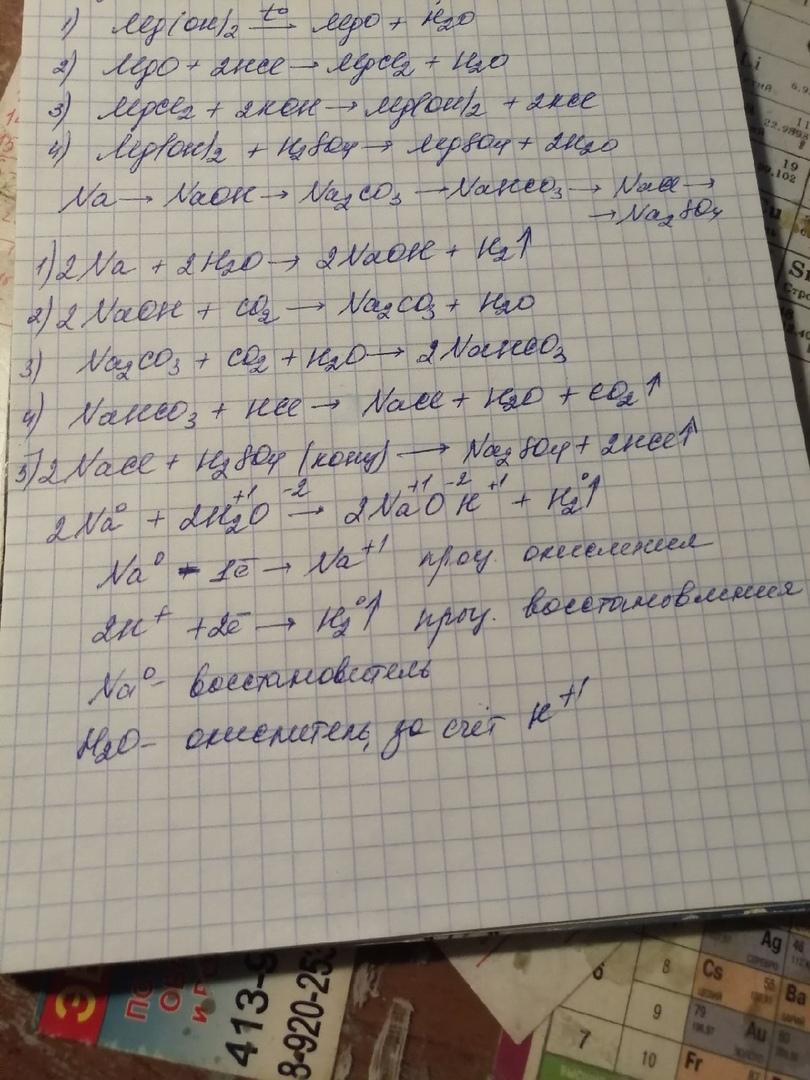 1) Mg(OH)2 t° → MgO + H2O
2) MgO + 2HCl → MgCl2 + H2O
3) MgCl2 + 2KOH → Mg(OH)2 + 2KCl
4) Mg(OH)2 + H2SO4 → MgSO4 + 2H2O
Na → NaOH → Na2CO3 → NaHCO3 → NaCl →
→ Na2SO4
1) 2Na + 2H2O → 2NaOH + H2↑
2) 2NaOH + CO2 → Na2CO3 + H2O
3) Na2CO3 + CO2 + H2O → 2NaHCO3
4) NaHCO3 + HCl → NaCl + H2O + CO2↑
5) 2NaCl + H2SO4 (конц) → Na2SO4 + 2HCl↑
2Na⁰ + 2H2⁺¹O⁻² → 2Na⁺¹O⁻²H⁺¹ + H2⁰↑
Na⁰ - 1ē → Na⁺¹ проц. окисления
2H⁺ + 2ē → H2⁰↑ проц. восстановления
Na⁰ - восстановитель
H2O - окислитель, за счёт H⁺¹
Li
11
19
Ag
СЕРЕБРО
6
8
Cs
55
Ba
9
79
Au
7
10
Fr
413-9
8-920-253